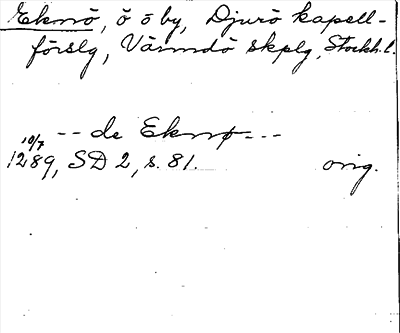 Eknö, ö o by, Djurö kapell-
förslg, Värmdö skplg, Stockh. l.
-- de Eknø---
10/7
1289, SD 2, s. 81. orig.